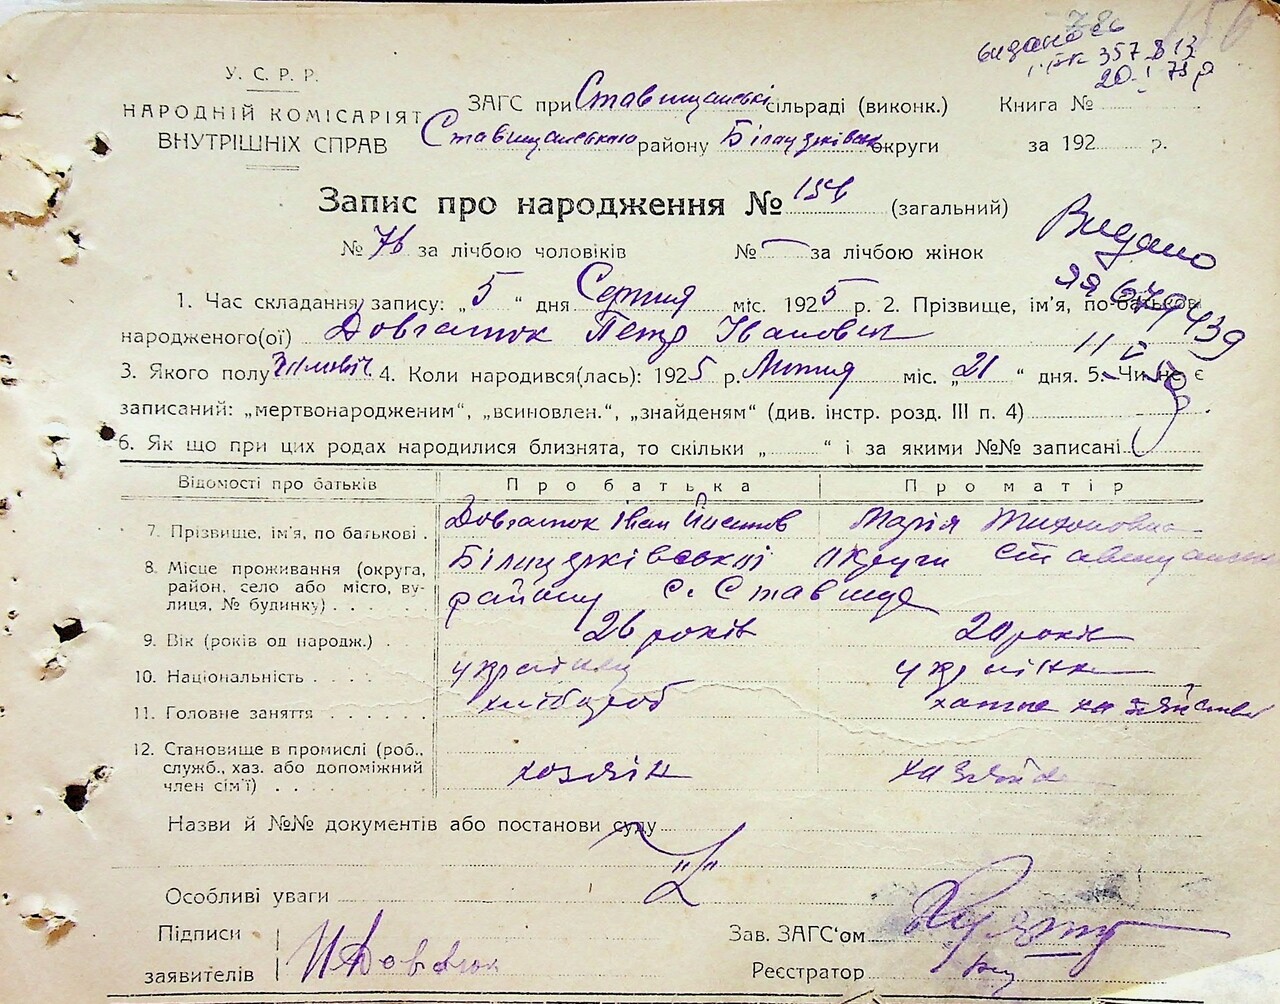 видано
357813
20 I 79 р
У. С. Р. Р.
НАРОДНІЙ КОМІСАРІЯТ
ВНУТРІШНІХ СПРАВ
ЗАГС при Ставищанські сільраді (виконк.) Книга №
Ставищанського району Білоцерківськ округи за 192 р.
Запис про народження № 156 (загальний)
№ 76 за лічбою чоловіків № — за лічбою жінок
Видано
ЯЯ 679439
11 V
1. Час складання запису: „ 5 “ дня Серпня міс. 1925 р. 2. Прізвище, ім'я, по-батькові
народженого(ої) Довгаток Петр Іванович
3. Якого полу чоловіч 4. Коли народився(лась): 1925 р. Липня міс. „ 21 “ дня. 5. Чи не є
записаний: „мертвонародженим“, „всиновлен.“, „знайденям“ (див. інстр. розд. III п. 4)
6. Як що при цих родах народилися близнята, то скільки „ “ і за якими №№ записані
Відомості про батьків Про батька Про матір
7. Прізвище, ім'я, по батькові . Довгаток Іван Йосипов Марія Тихоновна
8. Місце проживання (округа, район, село або місто, вулиця, № будинку) . . . . Білоцерківської округи Ставищанськ
району с. Ставище
9. Вік (років од народж.) . 26 років 20 років
10. Національність . . . . українец українка
11. Головне заняття . . . . . . хлібороб хатне хазяйство
12. Становище в промислі (роб., служб., хаз. або допоміжний член сім'ї) . . . . . . . . хозяїн хазяйка
Назви й №№ документів або постанови суду
Особливі уваги
Підписи
заявителів
Зав. ЗАГС'ом
Реєстратор